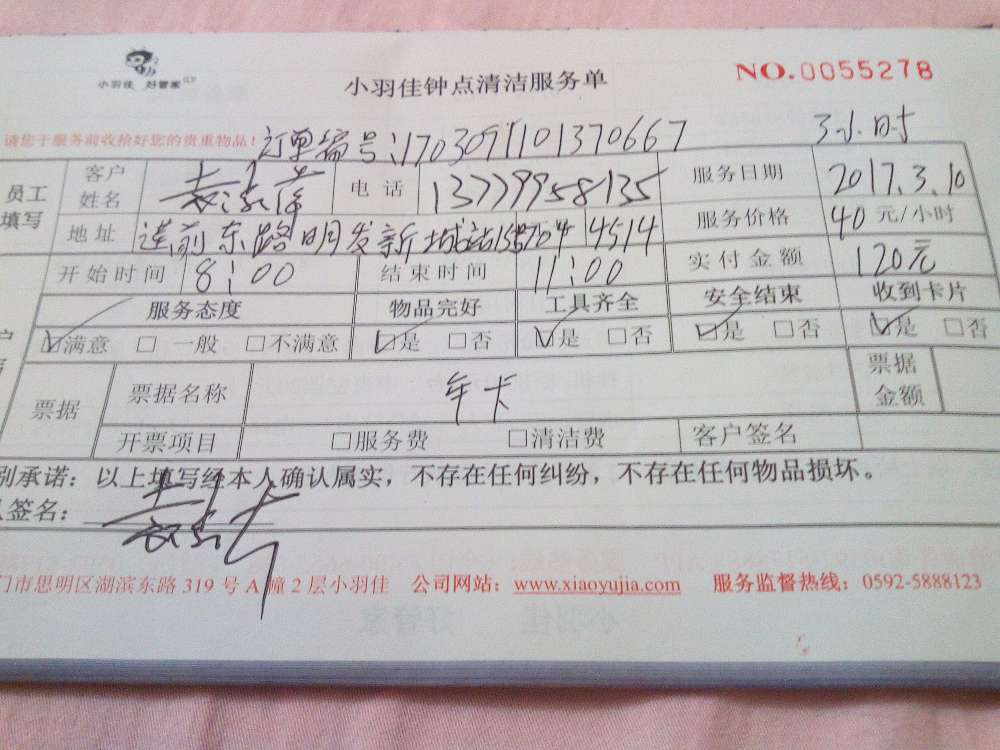 小羽佳 好管家
小羽佳钟点清洁服务单
NO.0055278
请您于服务前收拾好您的贵重物品!
订单编号:1703091101370667
3小时
员工填写
客户姓名
电话 13779958135
服务日期 2017.3.10
地址 莲前东路明发新城
4514
服务价格 40 元/小时
开始时间 8:00 结束时间 11:00 实付金额 120元
服务态度 物品完好 工具齐全 安全结束 收到卡片
☑满意 □ 一般 □不满意 ☑是 □否 ☑是 □否 ☑是 □否 ☑是 □否
票据 票据名称 年卡 票据金额
开票项目 □服务费 □清洁费 客户签名
别承诺:以上填写经本人确认属实,不存在任何纠纷,不存在任何物品损坏。
签名:
门市思明区湖滨东路 319 号 A 幢 2 层小羽佳 公司网站:www.xiaoyujia.com 服务监督热线:0592-5888123